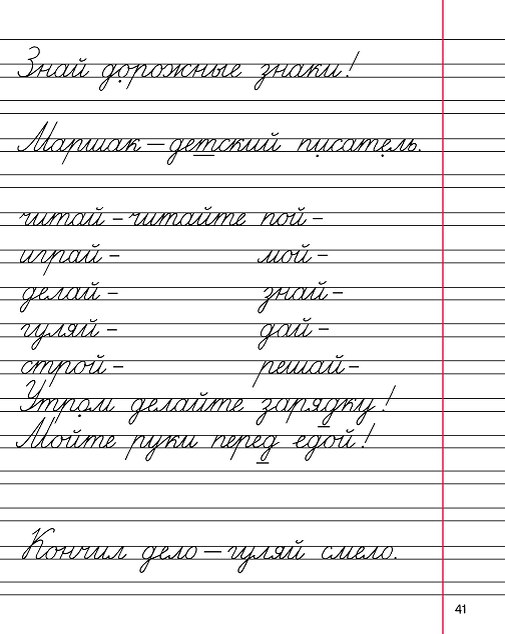 Знай дорожные знаки!
Маршак – детский писатель.
читай – читайте пой –
играй – мой –
делай – знай –
гуляй – дай –
строй – решай –
Утром делайте зарядку!
Мойте руки перед едой!
Кончил дело – гуляй смело.
41